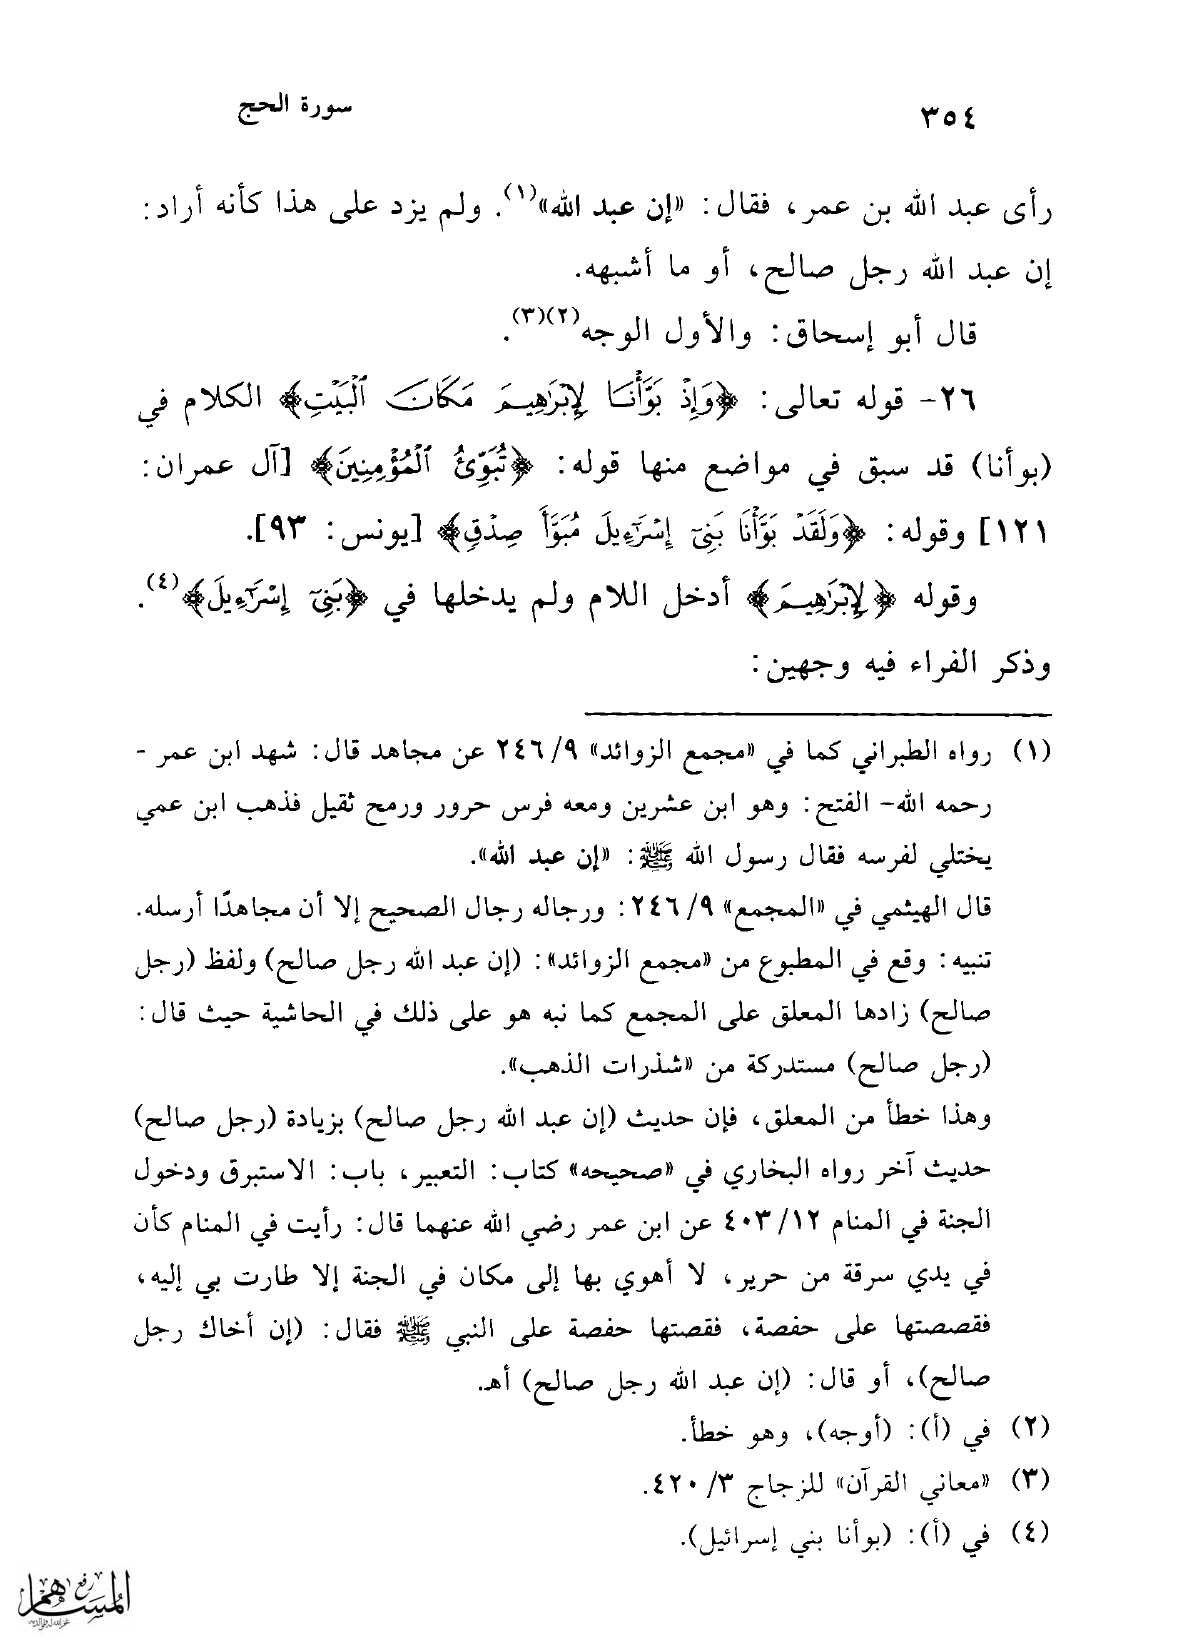 ٣٥٤ سورة الحج
رأى عبد الله بن عمر، فقال: «إن عبد الله»(١). ولم يزد على هذا كأنه أراد:
إن عبد الله رجل صالح، أو ما أشبهه.
قال أبو إسحاق: والأول الوجه(٢)(٣).
٢٦- قوله تعالى: ﴿وَإِذْ بَوَّأْنَا لِإِبْرَٰهِيمَ مَكَانَ ٱلْبَيْتِ﴾ الكلام في
(بوأنا) قد سبق في مواضع منها قوله: ﴿تُبَوِّئُ ٱلْمُؤْمِنِينَ﴾ [آل عمران:
١٢١] وقوله: ﴿وَلَقَدْ بَوَّأْنَا بَنِىٓ إِسْرَٰٓءِيلَ مُبَوَّأَ صِدْقٍ﴾ [يونس: ٩٣].
وقوله ﴿لِإِبْرَٰهِيمَ﴾ أدخل اللام ولم يدخلها في ﴿بَنِىٓ إِسْرَٰٓءِيلَ﴾(٤).
وذكر الفراء فيه وجهين:
(١) رواه الطبراني كما في «مجمع الزوائد» ٩/ ٢٤٦ عن مجاهد قال: شهد ابن عمر -
رحمه الله- الفتح: وهو ابن عشرين ومعه فرس حرور ورمح ثقيل فذهب ابن عمي
يختلي لفرسه فقال رسول الله ﷺ: «إن عبد الله».
قال الهيثمي في «المجمع» ٩/ ٢٤٦: ورجاله رجال الصحيح إلا أن مجاهدًا أرسله.
تنبيه: وقع في المطبوع من «مجمع الزوائد»: (إن عبد الله رجل صالح) ولفظ (رجل
صالح) زادها المعلق على المجمع كما نبه هو على ذلك في الحاشية حيث قال:
(رجل صالح) مستدركة من «شذرات الذهب».
وهذا خطأ من المعلق، فإن حديث (إن عبد الله رجل صالح) بزيادة (رجل صالح)
حديث آخر رواه البخاري في «صحيحه» كتاب: التعبير، باب: الاستبرق ودخول
الجنة في المنام ١٢/ ٤٠٣ عن ابن عمر رضي الله عنهما قال: رأيت في المنام كأن
في يدي سرقة من حرير، لا أهوي بها إلى مكان في الجنة إلا طارت بي إليه،
فقصصتها على حفصة، فقصتها حفصة على النبي ﷺ فقال: (إن أخاك رجل
صالح)، أو قال: (إن عبد الله رجل صالح) أهـ.
(٢) في (أ): (أوجه)، وهو خطأ.
(٣) «معاني القرآن» للزجاج ٣/ ٤٢٠.
(٤) في (أ): (بوأنا بني إسرائيل).